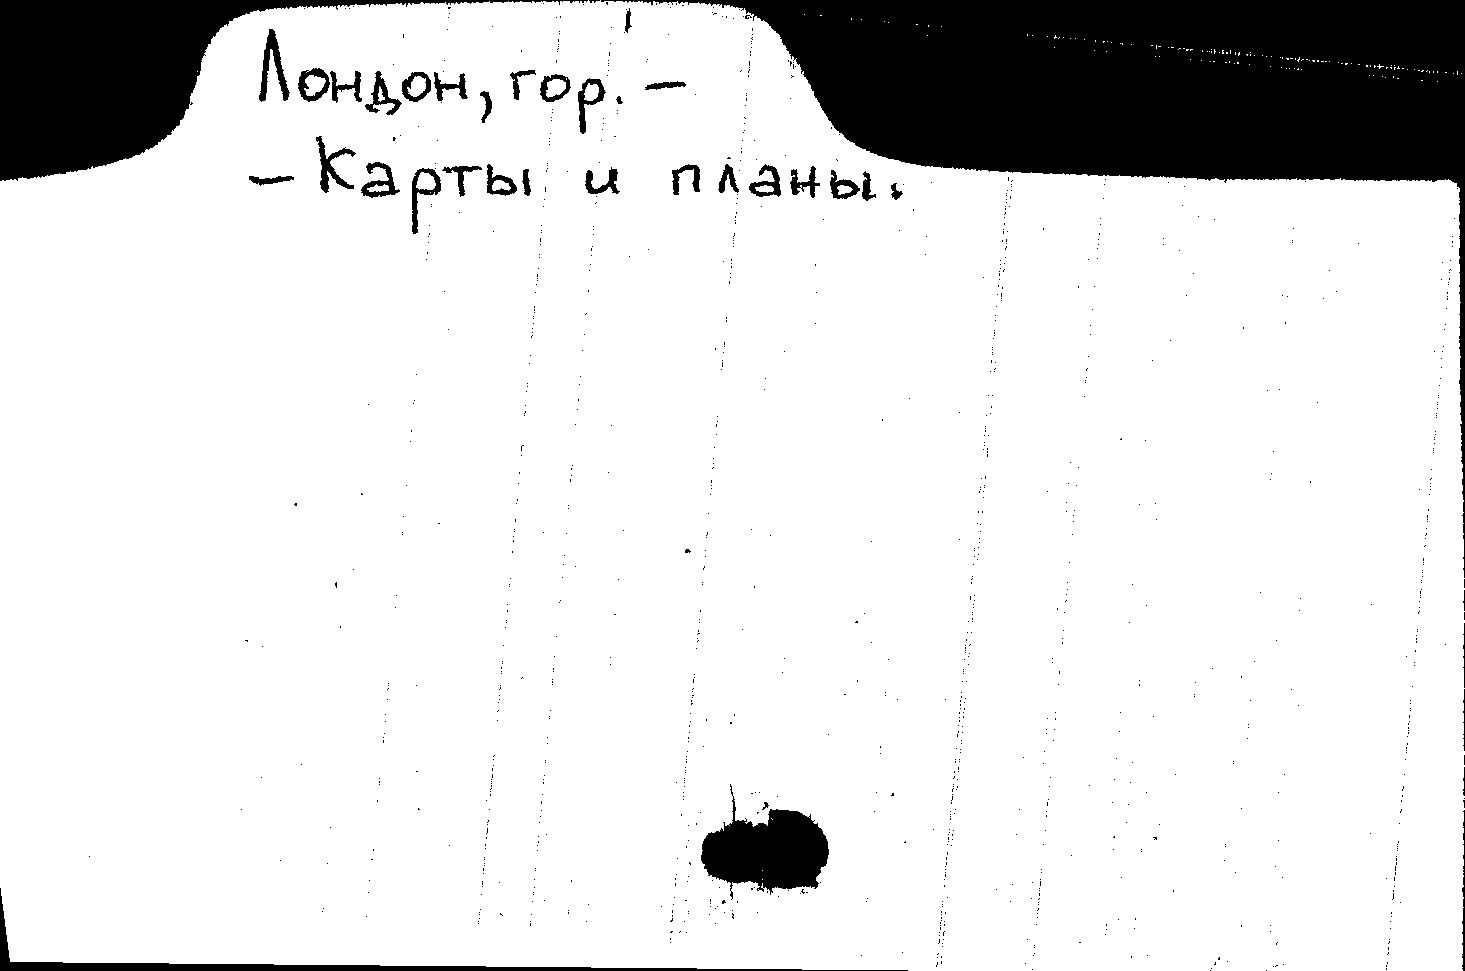 Лондон, гор. –
– Карты и планы.